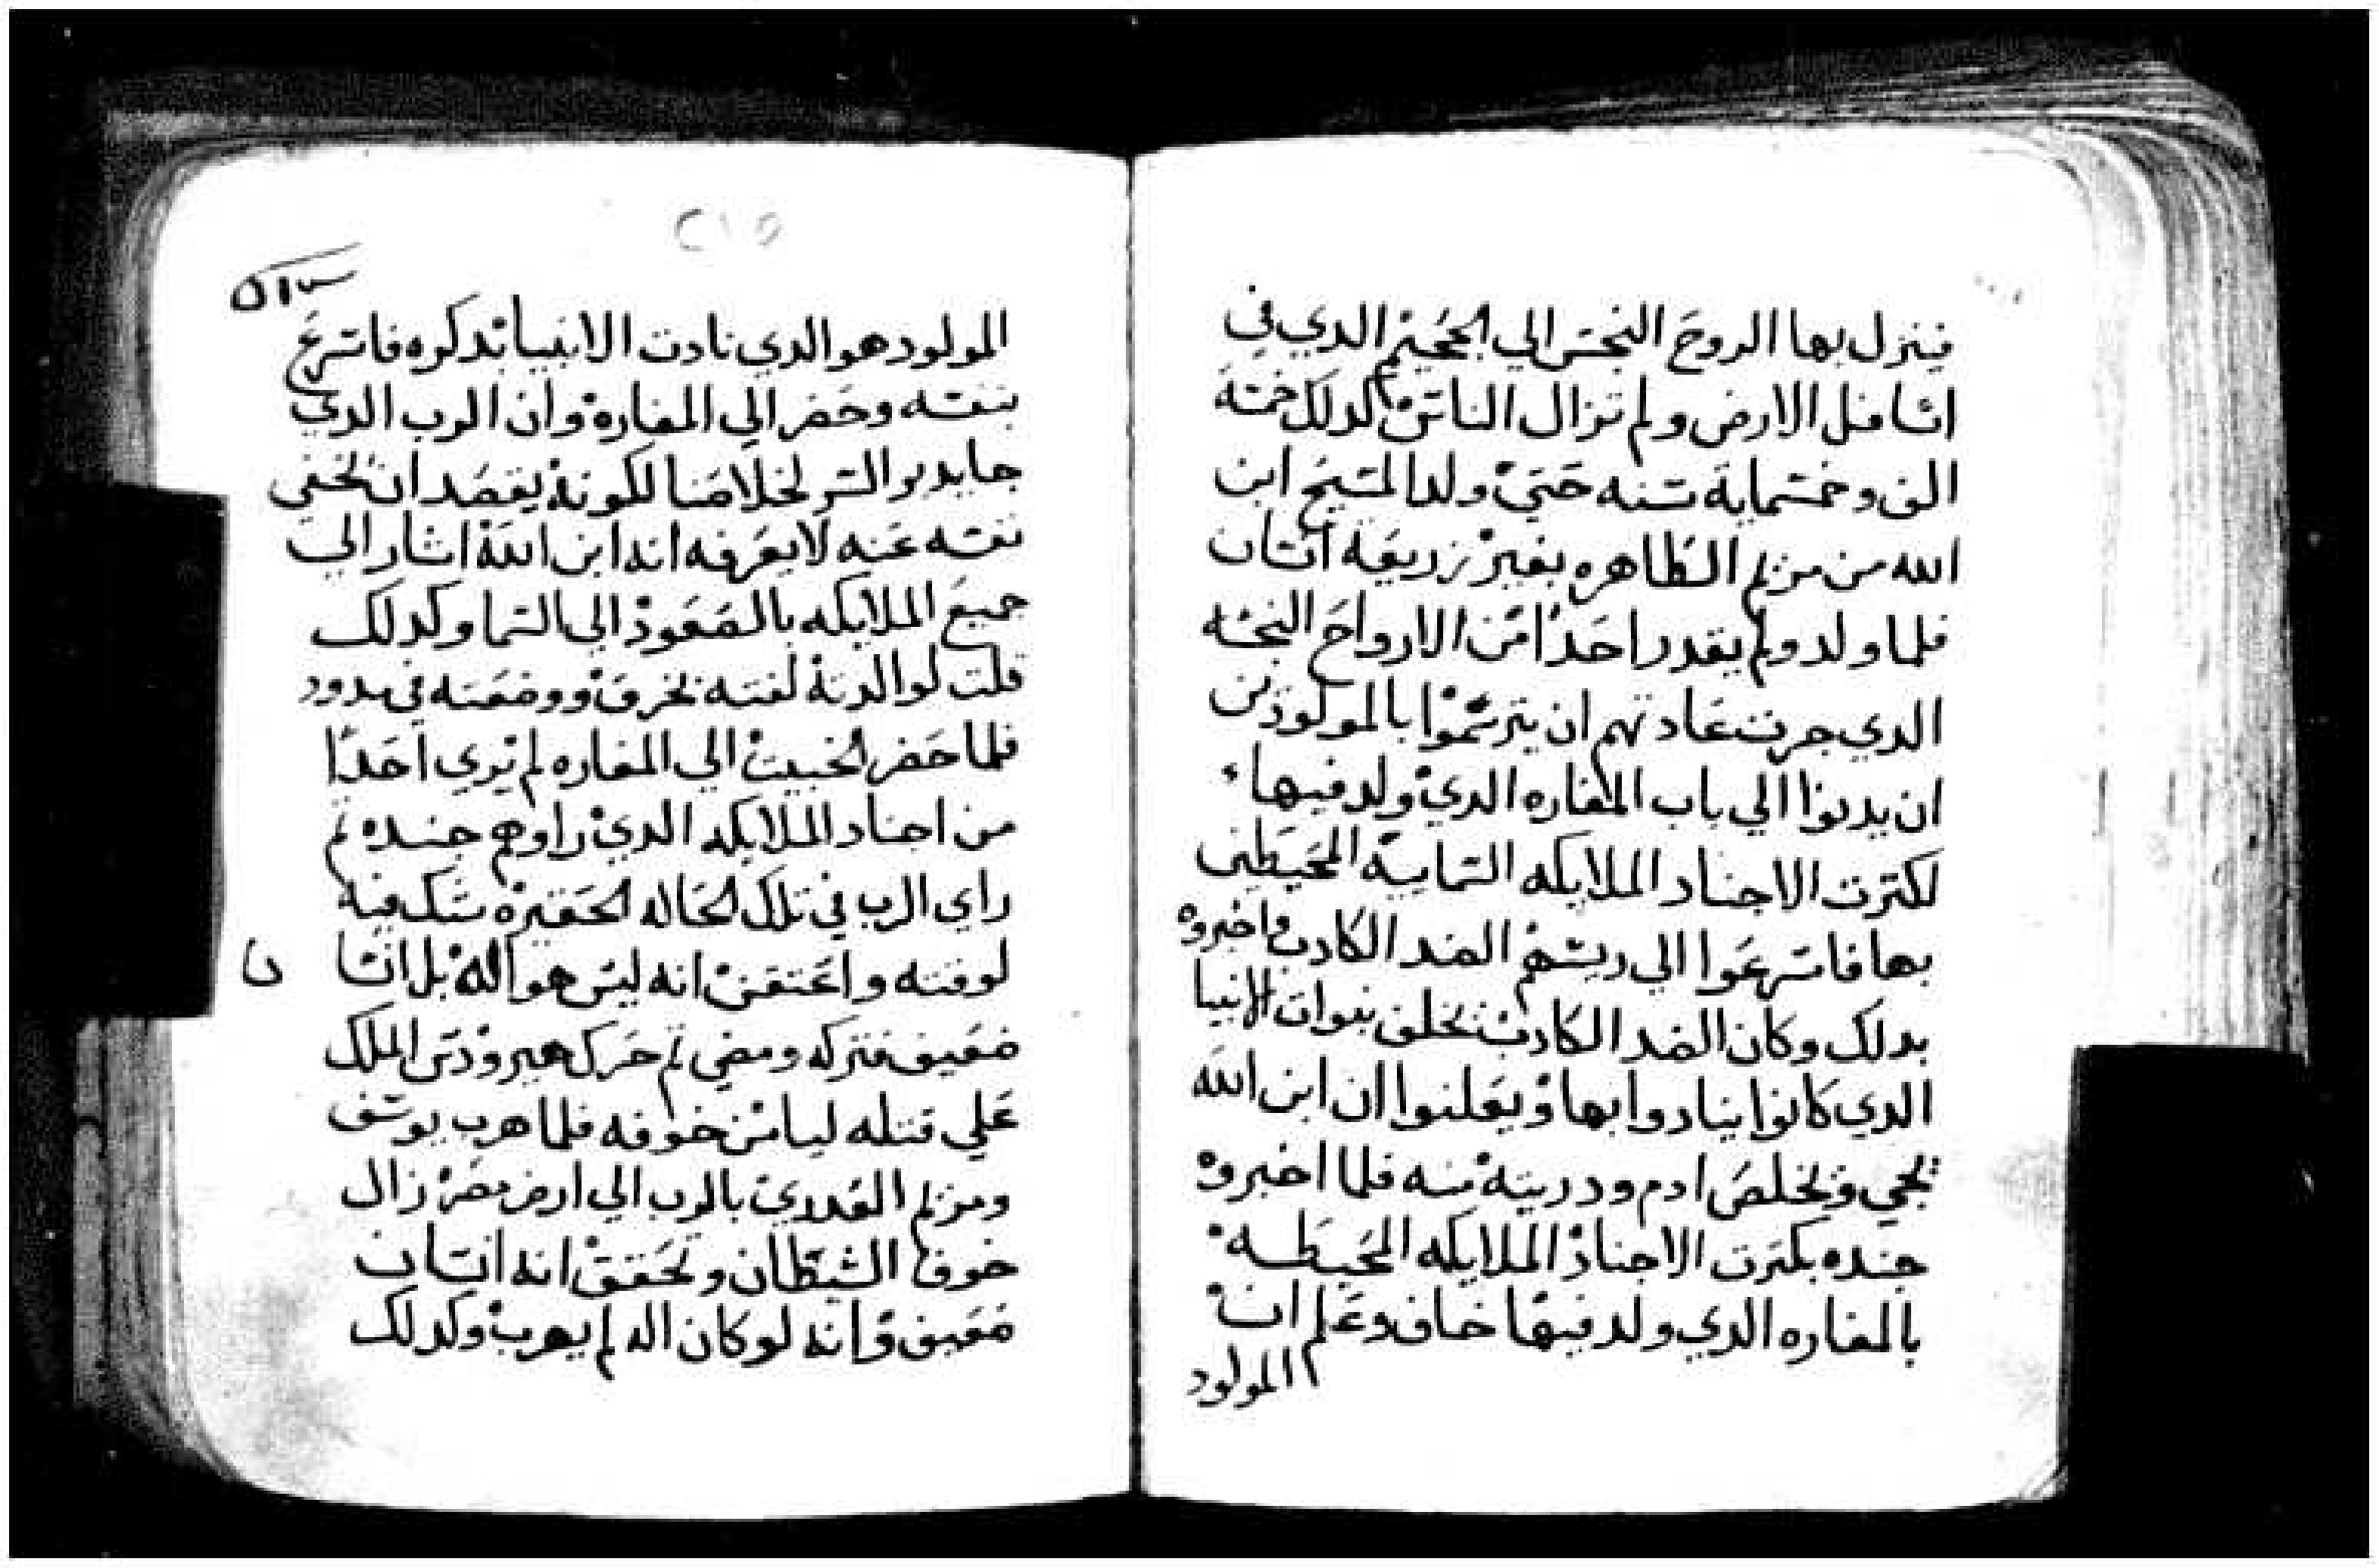 فينزل بها الروح النجس الي الجحيم الدي في
اسافل الارض ولم تزال الناس كدلك خمسة
الف وخمسمايه سنه حتي ولد المسيح ابن
الله من مريم الطاهره بغير زريعة انسان
فلما ولد ولم يقدر احدا من الارواح النجسه
الدي جرت عادتهم ان يترسموا بالمولودين
ان يدنوا الي باب المغاره الدي ولد فيها
لكترت الاجناد الملايكه السماييه المحيطين
بها فاسرعوا الي ريسهم الضد الكادب واخبروه
بدلك وكان الضد الكادب بنبوات الانبيا
الدي كانوا ينادوا بها ويعلنوا ان ابن الله
يجي ويخلص ادم ودريته منه فلما اخبروه
جنده بكترت الاجناد الملايكه المحيطه
بالمغاره الدي ولد فيها خاف وعلم ان
المولود
٢١٥
المولود هو الدي نادت الانبيا بدكره فاسرع
بنفسه وحضر الي المغاره وان الرب الدي
جا يدبر السر لخلاصنا لكونه يقصد ان يخفي
نفسه عنه لا يعرفه انه ابن الله اشار الي
جميع الملايكه بالصعود الي السما وكدلك
قلت لوالدته لفته بخرق ووضعته في مدود
فلما حضر الخبيت الي المغاره لم يري احدا
من اجناد الملايكه الدي راوهم جنده تم
راي الرب في تلك الحاله الحقيره شك فيه
لوقته واعتقد انه ليس هو اله بل انسا ن
ضعيف فتركه ومضي تم حرك هيرودس الملك
علي قتله ليامن خوفه فلما هرب يوسف
ومريم العدري بالرب الي ارض مصر زال
خوف الشيطان وتحقق انه انسان
ضعيف وانه لو كان اله لم يهرب وكدلك